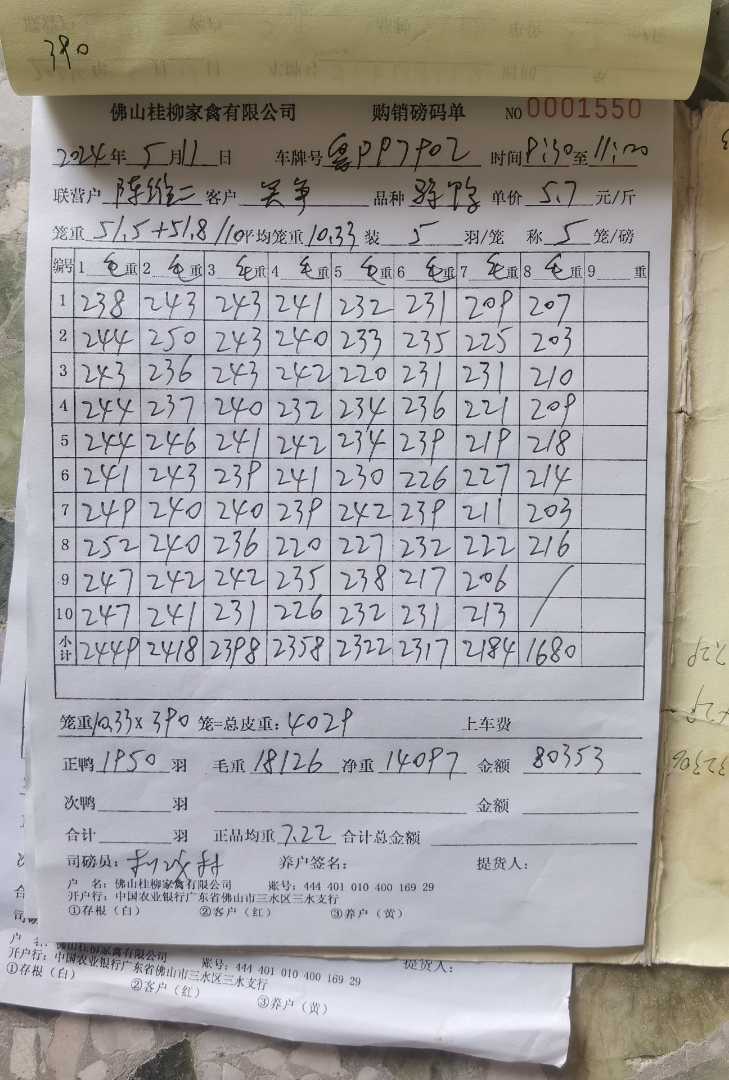 390
佛山桂柳家禽有限公司 购销磅码单 NO 0001550
2024年 5月11日 车牌号 粤PP7902 时间 8:30至11:00
联营户 陈维二 客户 吴争 品种 单价 5.7 元/斤
笼重 51.5+51.8/10 平均笼重 10.33 装 5 羽/笼 称 5 笼/磅
编号 1 毛重 2 毛重 3 毛重 4 毛重 5 毛重 6 毛重 7 毛重 8 毛重 9 重
1 238 243 243 241 232 231 209 207
2 244 250 243 240 233 235 225 203
3 243 236 243 242 220 231 231 210
4 244 237 240 232 234 236 221 209
5 244 246 241 242 234 239 219 218
6 241 243 239 241 230 226 227 214
7 249 240 240 239 242 239 211 203
8 252 240 236 220 227 232 222 216
9 247 242 242 235 238 217 206 /
10 247 241 231 226 232 231 213 /
小计 2449 2418 2398 2358 2322 2317 2184 1680
笼重 10.33×390 笼=总皮重: 4029 上车费
正鸭 1950 羽 毛重 18126 净重 14097 金额 80353
次鸭 羽 金额
合计 羽 正品均重 7.22 合计总金额
司磅员: 养户签名: 提货人:
户 名: 佛山桂柳家禽有限公司 账号: 444 401 010 400 169 29
开户行: 中国农业银行广东省佛山市三水区三水支行
①存根（白） ②客户（红） ③养户（黄）
户 名 佛山桂柳家禽有限公司 账号: 444 401 010 400 169 29 提货人:
开户行: 中国农业银行广东省佛山市三水区三水支行
①存根（白） ②客户（红） ③养户（黄）